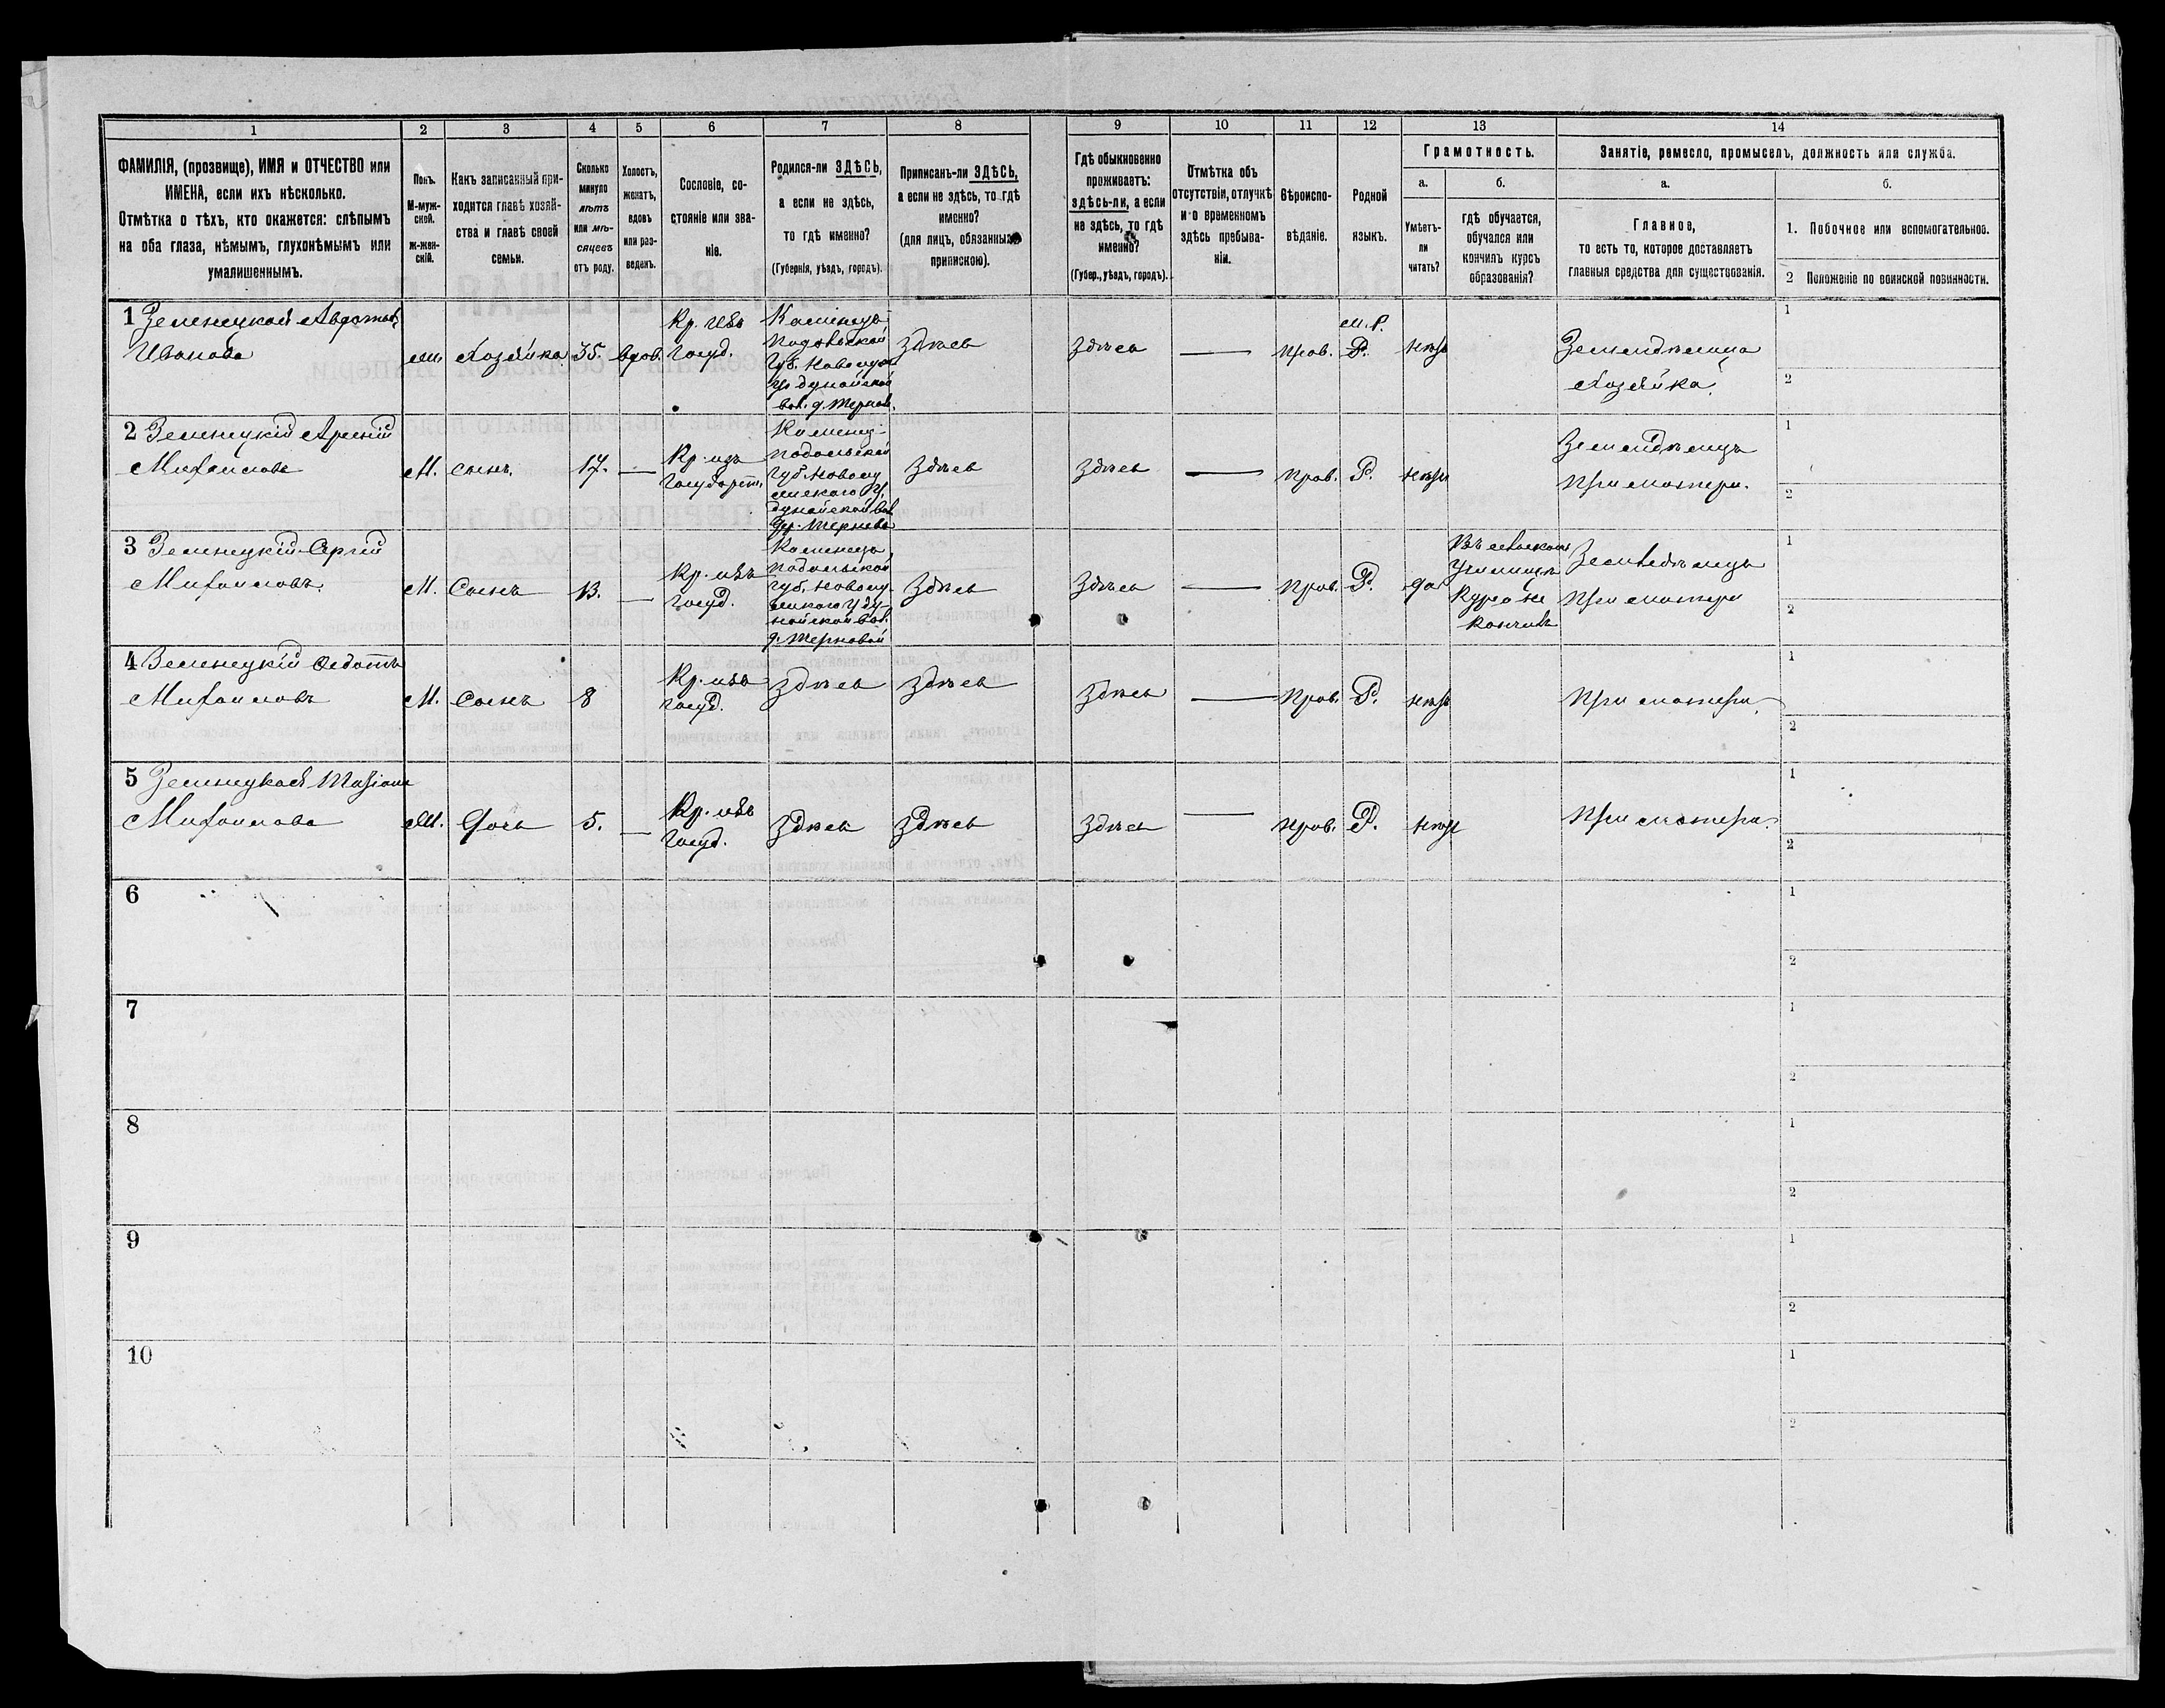 1 2 3 4 5 6 7 8 9 10 11 12 13 14
ФАМИЛІЯ, (прозвище), ИМЯ и ОТЧЕСТВО или
ИМЕНА, если ихъ нѣсколько.
Отмѣтка о тѣхъ, кто окажется: слѣпымъ
на оба глаза, нѣмымъ, глухонѣмымъ или
умалишеннымъ.
Полъ.
М-муж-
ской.
ж-жен-
скій.
Какъ записанный при-
ходится главѣ хозяй-
ства и главѣ своей
семьи.
Сколько
минуло
лѣтъ
или мѣ-
сяцевъ
отъ роду.
Холостъ,
женатъ,
вдовъ
или раз-
веденъ.
Сословіе, со-
стояніе или зва-
ніе.
Родился-ли ЗДѢСЬ,
а если не здѣсь,
то гдѣ именно?
(Губернія, уѣздъ, городъ).
Приписанъ-ли ЗДѢСЬ,
а если не здѣсь, то гдѣ
именно?
(для лицъ, обязанныхъ
припискою).
Гдѣ обыкновенно
проживаетъ:
здѣсь-ли, а если
не здѣсь, то гдѣ
именно?
(Губер., уѣздъ, городъ).
Отмѣтка объ
отсутствіи, отлучкѣ
и о временномъ
здѣсь пребыва-
ніи.
Вѣроиспо-
вѣданіе.
Родной
языкъ.
Грамотность.
а.
Умѣетъ-
ли
читать?
б.
гдѣ обучается,
обучался или
кончилъ курсъ
образованія?
Занятіе, ремесло, промыселъ, должность или служба.
а.
Главное,
то есть то, которое доставляетъ
главныя средства для существованія.
б.
1. Побочное или вспомогательное.
2 Положеніе по воинской повинности.
1 Зеленецкая
Иванова
Хозяйка
35.
вдов.
Кр. изъ
госуд.
Каменецъ
Подольской
губ.
дунайской
вол. д.
здѣсь
здѣсь
—
прав.
м. р.
Р.
нѣтъ
Хозяйка.
1
2
2 Зеленецкій Арсеній
Михаиловъ
М.
сынъ.
17.
—
Кр. изъ
Каменец-
Подольской
губ.
дунайской вол
здѣсь
здѣсь
—
прав.
Р.
нѣтъ
Земледѣлецъ
при матери.
1
2
3 Зеленецкій Сергій
Михаиловъ.
М.
Сынъ
13.
—
Кр. изъ
госуд.
Каменецъ
Подольской
губ.
д. Терновой
здѣсь
здѣсь
—
прав.
Р.
да
училищѣ
Курса не
кончилъ
Земледѣлецъ
при матери
1
2
4 Зеленецкій Федотъ
Михаиловъ
М.
Сынъ
8
Кр. изъ
госуд.
здѣсь
здѣсь
здѣсь
—
прав.
Р.
нѣтъ
при матери.
1
2
5 Зеленецкая
Михаилова
Дочь
5.
—
Кр. изъ
госуд.
здѣсь
здѣсь
здѣсь
—
прав.
Р.
нѣтъ
при матери.
1
2
6
1
2
7
1
2
8
1
2
9
1
2
10
1
2